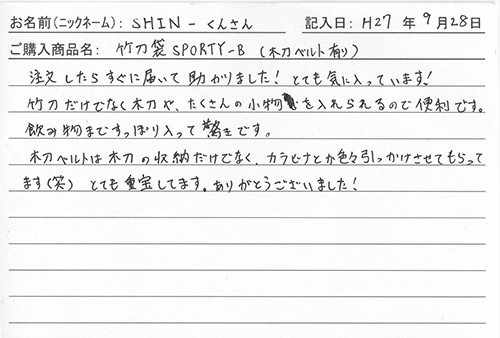 お名前(ニックネーム): SHIN-くんさん 記入日: H27 年 9月28日
ご購入商品名: 竹刀袋SPORTY-B (木刀ベルト有り)
注文したらすぐに届いて助かりました! とても気に入っています!
竹刀だけでなく木刀や、たくさんの小物を入れられるので便利です。
飲み物まですっぽり入って驚きです。
木刀ベルトは木刀の収納だけでなく、カラビナとか色々引っかけさせてもらって
ます(笑) とても重宝してます。ありがとうございました!